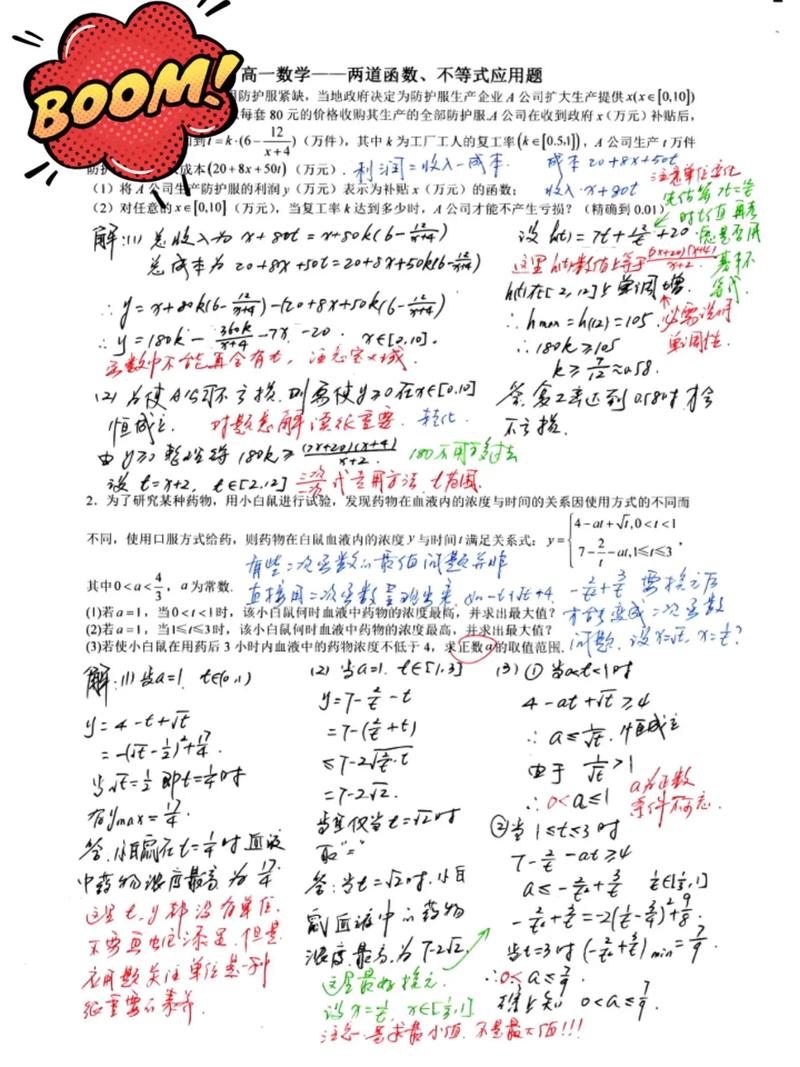 BOOM!
高一数学——两道函数、不等式应用题
防护服紧缺，当地政府决定为防护服生产企业 A 公司扩大生产提供 x(x∈[0,10])
每套 80 元的价格收购其生产的全部防护服.A 公司在收到政府 x（万元）补贴后，
到 t=k·(6-12/(x+4))（万件），其中 k 为工厂工人的复工率(k∈[0.5,1])，A 公司生产 t 万件
成本(20+8x+50t)（万元）. 利润=收入-成本. 成本 20+8x+50t
注意单位变化
（1）将 A 公司生产防护服的利润 y（万元）表示为补贴 x（万元）的函数； 收入 x+80t
（2）对任意的 x∈[0,10]（万元），当复工率 k 达到多少时，A 公司才能不产生亏损？（精确到 0.01）
解:(1) 总收入为 x+80t = x+80k(6-12/(x+4))
总成本为 20+8x+50t=20+8x+50k(6-12/(x+4))
∴ y=x+80k(6-12/(x+4))-(20+8x+50k(6-12/(x+4))
∴ y=180k-360k/(x+4)-7x-20. x∈[0,10].
函数中不能再含有t，注意定义域
(2) 为使A公司不亏损，则需使y≥0在x∈[0,10]
恒成立. 对题意解读很重要. 转化.
由 y≥0 整理得 180k≥(7x+20)(x+4)/(x+2). 180不用移过去
设 t=x+2, t∈[2,12] 代 常用方法 t范围.
设 h(t)=7t+12/t+20
这里h(t)数值上等于(7x+20)(x+4)/(x+2)
h(t)在[2,12]上单调增.
∴ hmax=h(12)=105. 必需说明
单调性.
∴ 180k≥105
k≥7/12≈0.58.
答:复工率达到0.58时才会
不亏损.
2．为了研究某种药物，用小白鼠进行试验，发现药物在血液内的浓度与时间的关系因使用方式的不同而
不同，使用口服方式给药，则药物在白鼠血液内的浓度 y 与时间 t 满足关系式：y={4-at+√t,0<t<1
7-2/t-at,1≤t≤3，
有些二次函数的最值问题并非
其中0<a<4/3，a为常数. 直接用二次函数呈现出来 如-t+√t+4, -2/t²+3/t 要换元后
(1)若a=1，当0<t<1时，该小白鼠何时血液中药物的浓度最高，并求出最大值？ 才能变成二次函数
(2)若a=1，当1≤t≤3时，该小白鼠何时血液中药物的浓度最高，并求出最大值？ 问题. 设x=√t, x=1/t?
(3)若使小白鼠在用药后 3 小时内血液中的药物浓度不低于 4，求正数a的取值范围.
解:(1) 当a=1. t∈(0,1)
y=4-t+√t
=-(√t-1/2)²+17/4.
当√t=1/2 即t=1/4时
有ymax=17/4.
答.小白鼠在t=1/4时血液
中药物浓度最高为17/4
这里t,y都没有单位.
不要画蛇添足.但是
应用题关注单位是一个
很重要的素养.
(2) 当a=1. t∈[1,3]
y=7-2/t-t
=7-(2/t+t)
≤7-2√(2/t·t)
=7-2√2.
当且仅当t=√2时
取"="
答:当t=√2时.小白
鼠血液中的药物
浓度最高.为7-2√2.
(3) ① 当0<t<1时
4-at+√t≥4
∴ a≤1/√t. 恒成立
由于 1/√t>1
∴ 0<a≤1
a为正数
条件不可忘.
②当1≤t≤3时
7-2/t-at≥4
a≤-2/t²+3/t 1/t∈[1/3,1]
-2/t²+3/t=-2(1/t-3/4)²+9/8.
当t=3时 (-2/t²+3/t)min=7/9.
∴0<a≤7/9.
综上知 0<a≤7/9.
这里最好换元
设x=1/t, x∈[1/3,1]
注意.是求最小值.不是最大值!!!